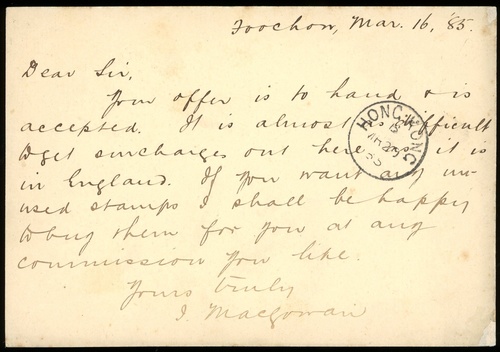 Foochow, Mar. 16, '85.
Dear Sir,
Your offer is to hand & is
accepted. It is almost as difficult
to get surcharges out here as it is
in England. If you want any un-
used stamps I shall be happy
to buy them for you at any
commission you like.
Yours truly
J. Macgowan
HONG KONG